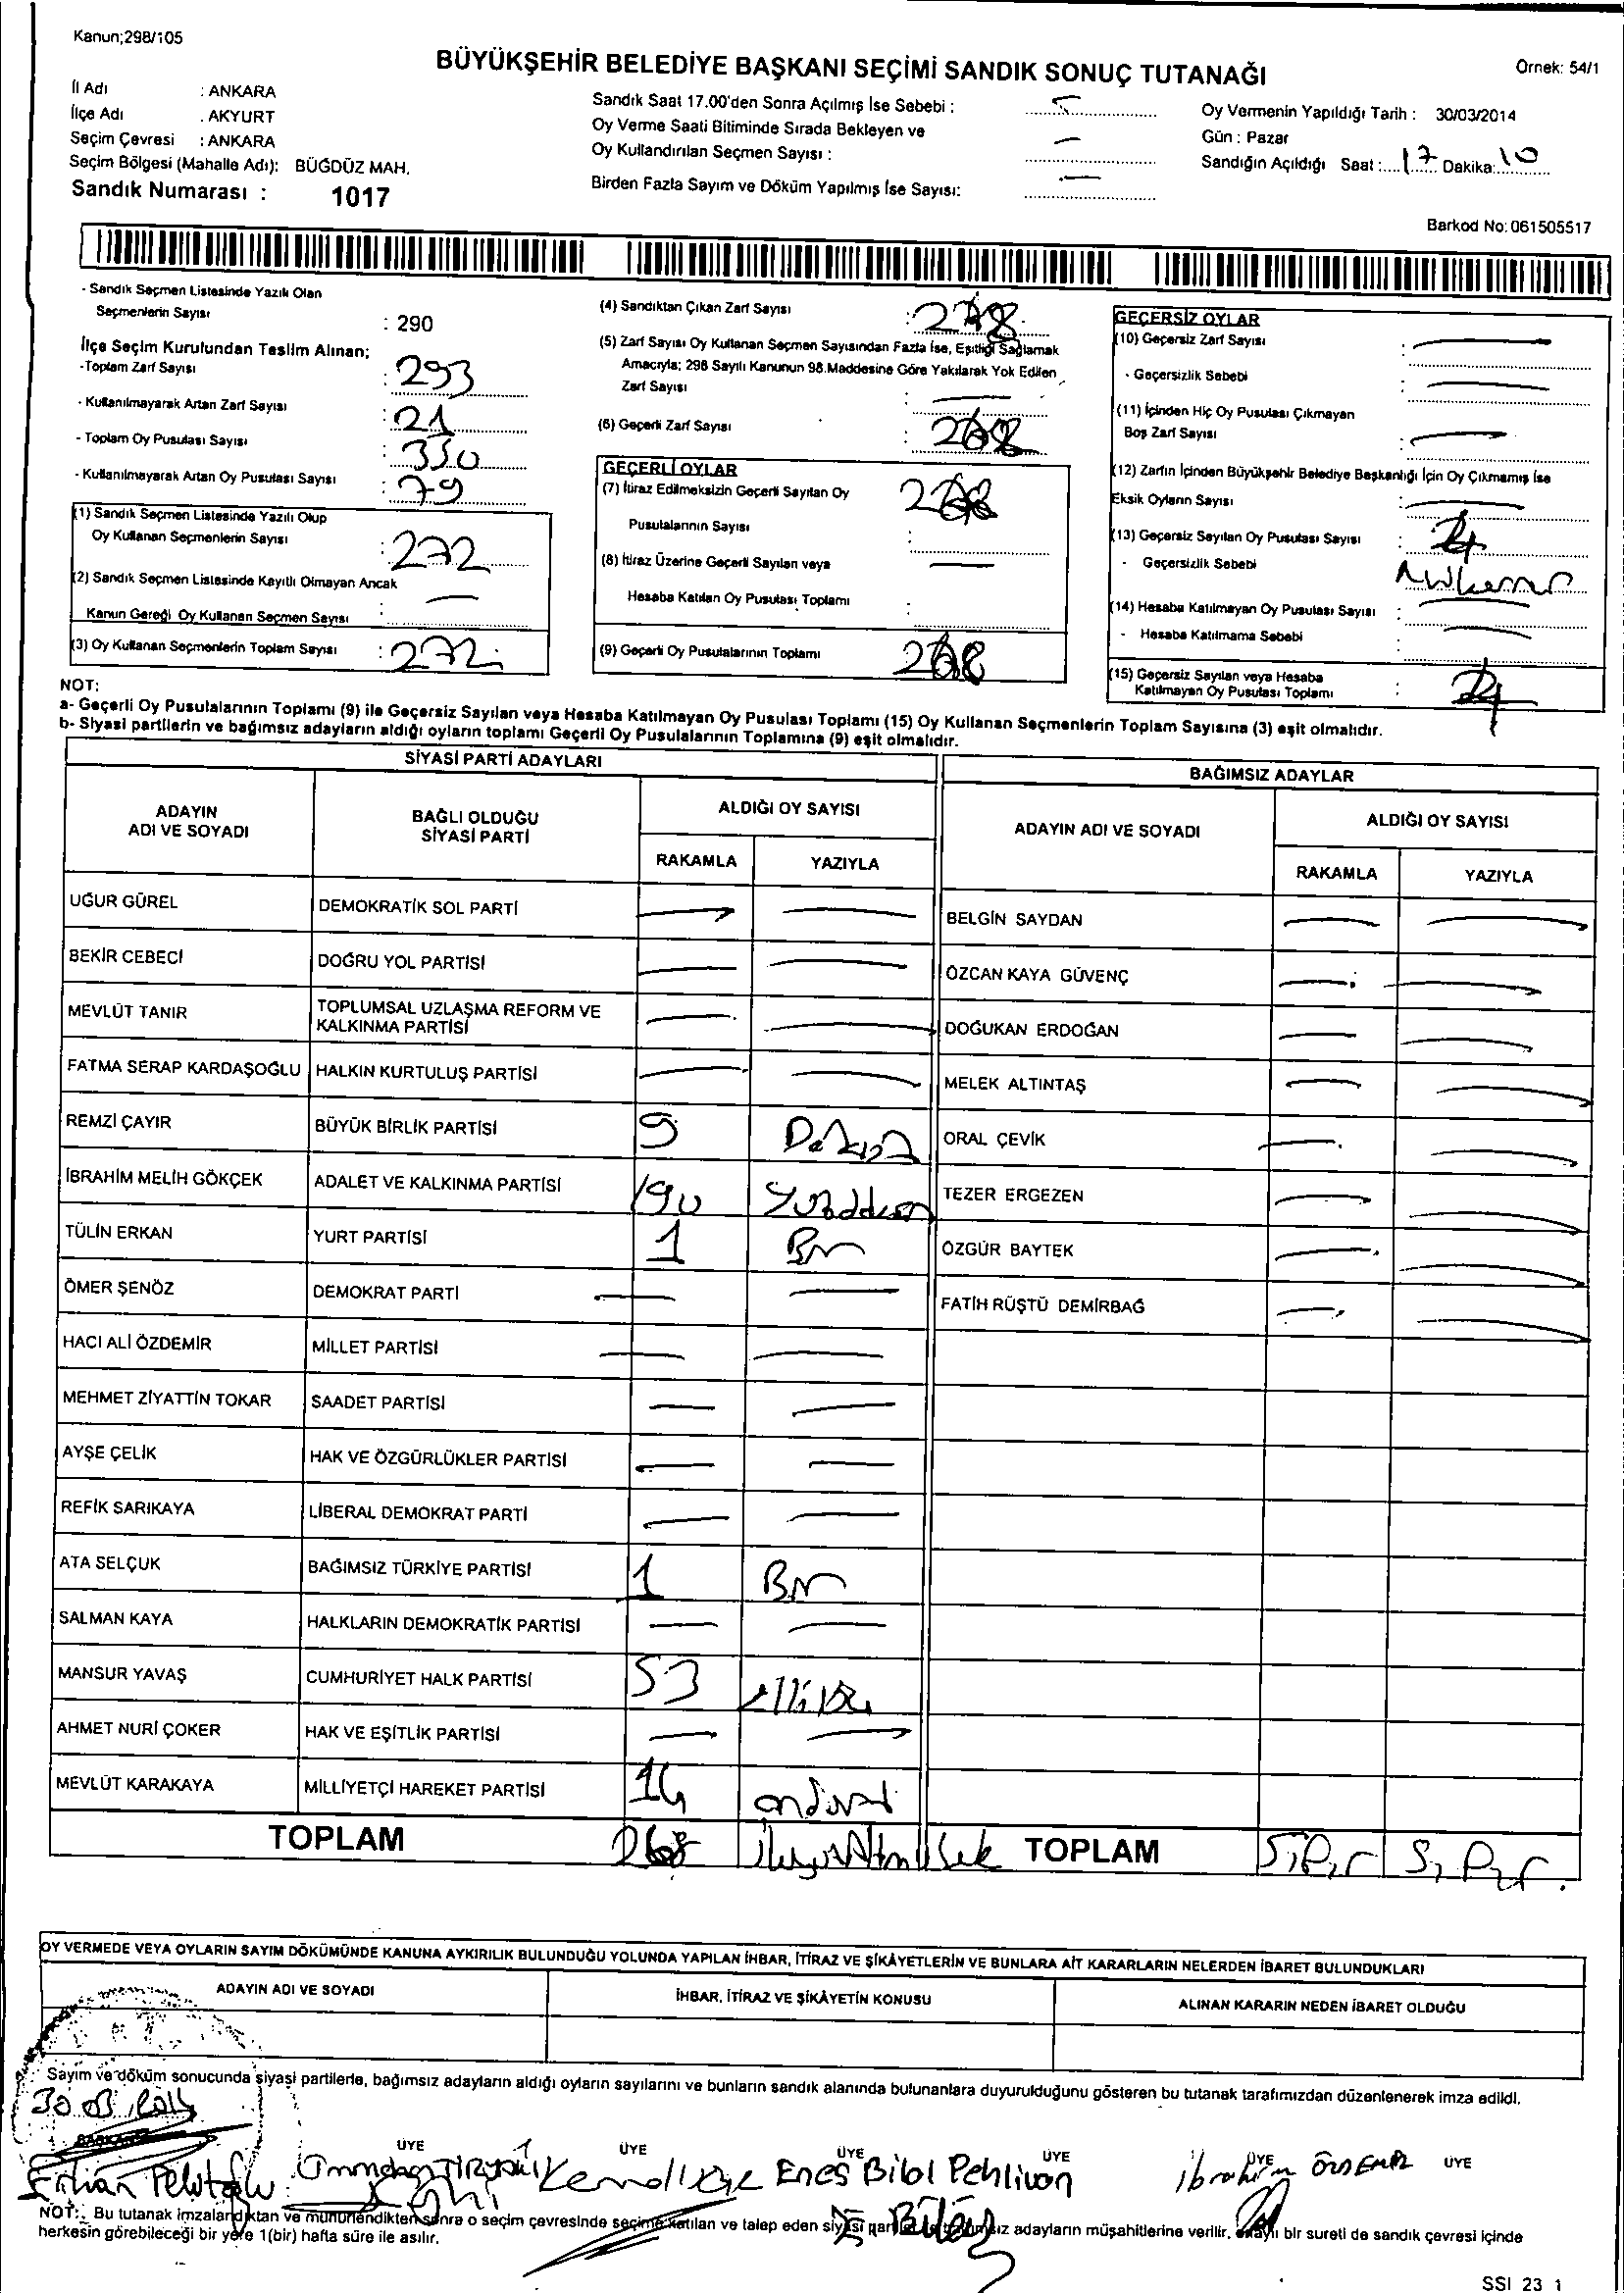 Kanun;298/105
BÜYÜKŞEHİR BELEDİYE BAŞKANI SEÇİMİ SANDIK SONUÇ TUTANAĞI
Örnek: 54/1
İl Adı : ANKARA
İlçe Adı . AKYURT
Seçim Çevresi : ANKARA
Seçim Bölgesi (Mahalle Adı): BÜĞDÜZ MAH.
Sandık Numarası : 1017
Sandık Saat 17.00'den Sonra Açılmış İse Sebebi :
Oy Verme Saati Bitiminde Sırada Bekleyen ve
Oy Kullandırılan Seçmen Sayısı : —
Birden Fazla Sayım ve Döküm Yapılmış İse Sayısı: —
Oy Vermenin Yapıldığı Tarih : 30/03/2014
Gün : Pazar
Sandığın Açıldığı Saat : 17 Dakika: 10
Barkod No: 061505517
- Sandık Seçmen Listesinde Yazılı Olan
Seçmenlerin Sayısı : 290
İlçe Seçim Kurulundan Teslim Alınan;
-Toplam Zarf Sayısı : 293
- Kullanılmayarak Artan Zarf Sayısı : 21
- Toplam Oy Pusulası Sayısı : 350
- Kullanılmayarak Artan Oy Pusulası Sayısı : 79
(1) Sandık Seçmen Listesinde Yazılı Olup
Oy Kullanan Seçmenlerin Sayısı : 272
(2) Sandık Seçmen Listesinde Kayıtlı Olmayan Ancak
Kanun Gereği Oy Kullanan Seçmen Sayısı : —
(3) Oy Kullanan Seçmenlerin Toplam Sayısı : 272
(4) Sandıktan Çıkan Zarf Sayısı :
(5) Zarf Sayısı Oy Kullanan Seçmen Sayısından Fazla İse, Eşitliği Sağlamak
Amacıyla; 298 Sayılı Kanunun 98.Maddesine Göre Yakılarak Yok Edilen
Zarf Sayısı : —
(6) Geçerli Zarf Sayısı : 268
GEÇERLİ OYLAR
(7) İtiraz Edilmeksizin Geçerli Sayılan Oy
Pusulalarının Sayısı : 268
(8) İtiraz Üzerine Geçerli Sayılan veya
Hesaba Katılan Oy Pusulası Toplamı : —
(9) Geçerli Oy Pusulalarının Toplamı 268
GEÇERSİZ OYLAR
(10) Geçersiz Zarf Sayısı : —
- Geçersizlik Sebebi : —
(11) İçinden Hiç Oy Pusulası Çıkmayan
Boş Zarf Sayısı : —
(12) Zarfın İçinden Büyükşehir Belediye Başkanlığı İçin Oy Çıkmamış İse
Eksik Oyların Sayısı —
(13) Geçersiz Sayılan Oy Pusulası Sayısı : 4
- Geçersizlik Sebebi
(14) Hesaba Katılmayan Oy Pusulası Sayısı : —
- Hesaba Katılmama Sebebi : —
(15) Geçersiz Sayılan veya Hesaba
Katılmayan Oy Pusulası Toplamı : 4
NOT:
a- Geçerli Oy Pusulalarının Toplamı (9) ile Geçersiz Sayılan veya Hesaba Katılmayan Oy Pusulası Toplamı (15) Oy Kullanan Seçmenlerin Toplam Sayısına (3) eşit olmalıdır.
b- Siyasi partilerin ve bağımsız adayların aldığı oyların toplamı Geçerli Oy Pusulalarının Toplamına (9) eşit olmalıdır.
SİYASİ PARTİ ADAYLARI
BAĞIMSIZ ADAYLAR
ADAYIN ADI VE SOYADI
BAĞLI OLDUĞU SİYASİ PARTİ
ALDIĞI OY SAYISI
ADAYIN ADI VE SOYADI
ALDIĞI OY SAYISI
RAKAMLA YAZIYLA RAKAMLA YAZIYLA
UĞUR GÜREL DEMOKRATİK SOL PARTİ — — BELGİN SAYDAN — —
BEKİR CEBECİ DOĞRU YOL PARTİSİ — — ÖZCAN KAYA GÜVENÇ — —
MEVLÜT TANIR TOPLUMSAL UZLAŞMA REFORM VE KALKINMA PARTİSİ — — DOĞUKAN ERDOĞAN — —
FATMA SERAP KARDAŞOĞLU HALKIN KURTULUŞ PARTİSİ — — MELEK ALTINTAŞ — —
REMZİ ÇAYIR BÜYÜK BİRLİK PARTİSİ 9 Dokuz ORAL ÇEVİK — —
İBRAHİM MELİH GÖKÇEK ADALET VE KALKINMA PARTİSİ 190 Yüzdoksan TEZER ERGEZEN — —
TÜLİN ERKAN YURT PARTİSİ 1 Bir ÖZGÜR BAYTEK — —
ÖMER ŞENÖZ DEMOKRAT PARTİ — — FATİH RÜŞTÜ DEMİRBAĞ — —
HACI ALİ ÖZDEMİR MİLLET PARTİSİ — —
MEHMET ZİYATTİN TOKAR SAADET PARTİSİ — —
AYŞE ÇELİK HAK VE ÖZGÜRLÜKLER PARTİSİ — —
REFİK SARIKAYA LİBERAL DEMOKRAT PARTİ — —
ATA SELÇUK BAĞIMSIZ TÜRKİYE PARTİSİ 1 Bir
SALMAN KAYA HALKLARIN DEMOKRATİK PARTİSİ — —
MANSUR YAVAŞ CUMHURİYET HALK PARTİSİ 53 elliüç
AHMET NURİ ÇOKER HAK VE EŞİTLİK PARTİSİ — —
MEVLÜT KARAKAYA MİLLİYETÇİ HAREKET PARTİSİ 14 ondört
TOPLAM 268 ikiyüzAltmışsek TOPLAM Sıfır Sıfır
OY VERMEDE VEYA OYLARIN SAYIM DÖKÜMÜNDE KANUNA AYKIRILIK BULUNDUĞU YOLUNDA YAPILAN İHBAR, İTİRAZ VE ŞİKÂYETLERİN VE BUNLARA AİT KARARLARIN NELERDEN İBARET BULUNDUKLARI
ADAYIN ADI VE SOYADI İHBAR, İTİRAZ VE ŞİKÂYETİN KONUSU ALINAN KARARIN NEDEN İBARET OLDUĞU
Sayım ve döküm sonucunda siyasi partilerle, bağımsız adayların aldığı oyların sayılarını ve bunların sandık alanında bulunanlara duyurulduğunu gösteren bu tutanak tarafımızdan düzenlenerek imza edildi.
30.03.2014
BAŞKAN ÜYE ÜYE ÜYE ÜYE ÜYE ÜYE
Enes Bilal Pehlivan ibrahim ÖZDEMİR
NOT: Bu tutanak imzalandıktan ve mühürlendikten sonra o seçim çevresinde seçime katılan ve talep eden siyasi partiler ile bağımsız adayların müşahitlerine verilir, onaylı bir sureti de sandık çevresi içinde
herkesin görebileceği bir yere 1(bir) hafta süre ile asılır.
SSI 23 1